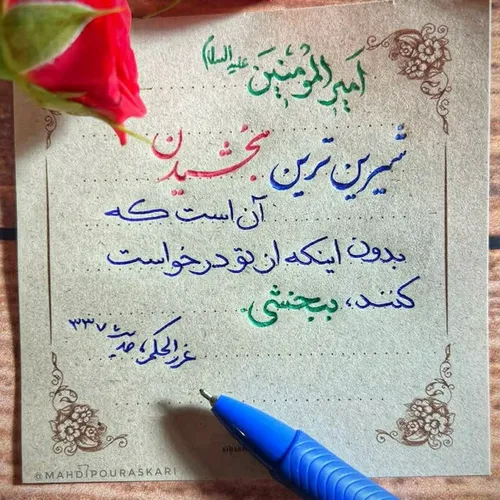 امیرالمؤمنین علیه‌السلام
شیرین ترین بخشیدن
آن است که
بدون اینکه از تو درخواست
کنند، ببخشی.
غررالحکم، حدیث ۳۳۷
@MAHDIPOURASKARI